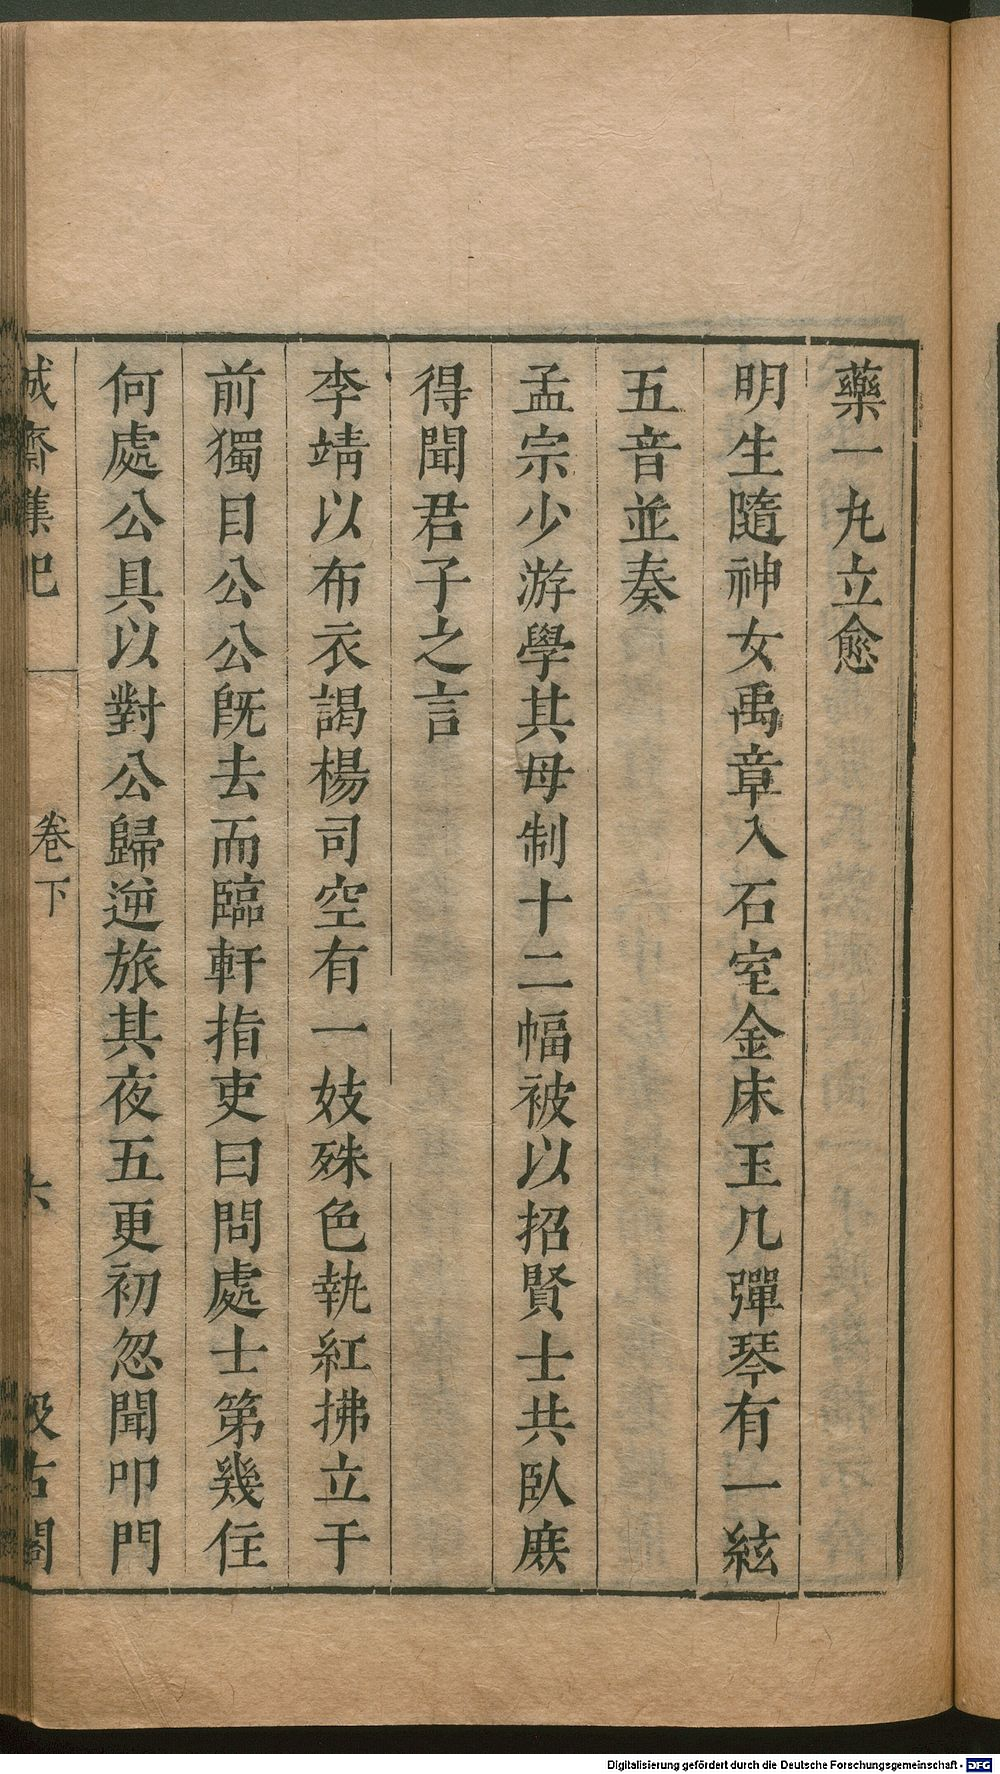 藥一丸立愈
明生隨神女禹章入石室金床玉几彈琴有一絃
五音並奏
孟宗少游學其母制十二幅被以招賢士共臥庻
得聞君子之言
李靖以布衣謁楊司空有一妓殊色執紅拂立于
前獨目公公旣去而臨軒指吏曰問處士第幾住
何處公具以對公歸逆旅其夜五更初忽聞叩門
誠齋集記 卷下 六 汲古閣
Digitalisierung gefördert durch die Deutsche Forschungsgemeinschaft - DFG